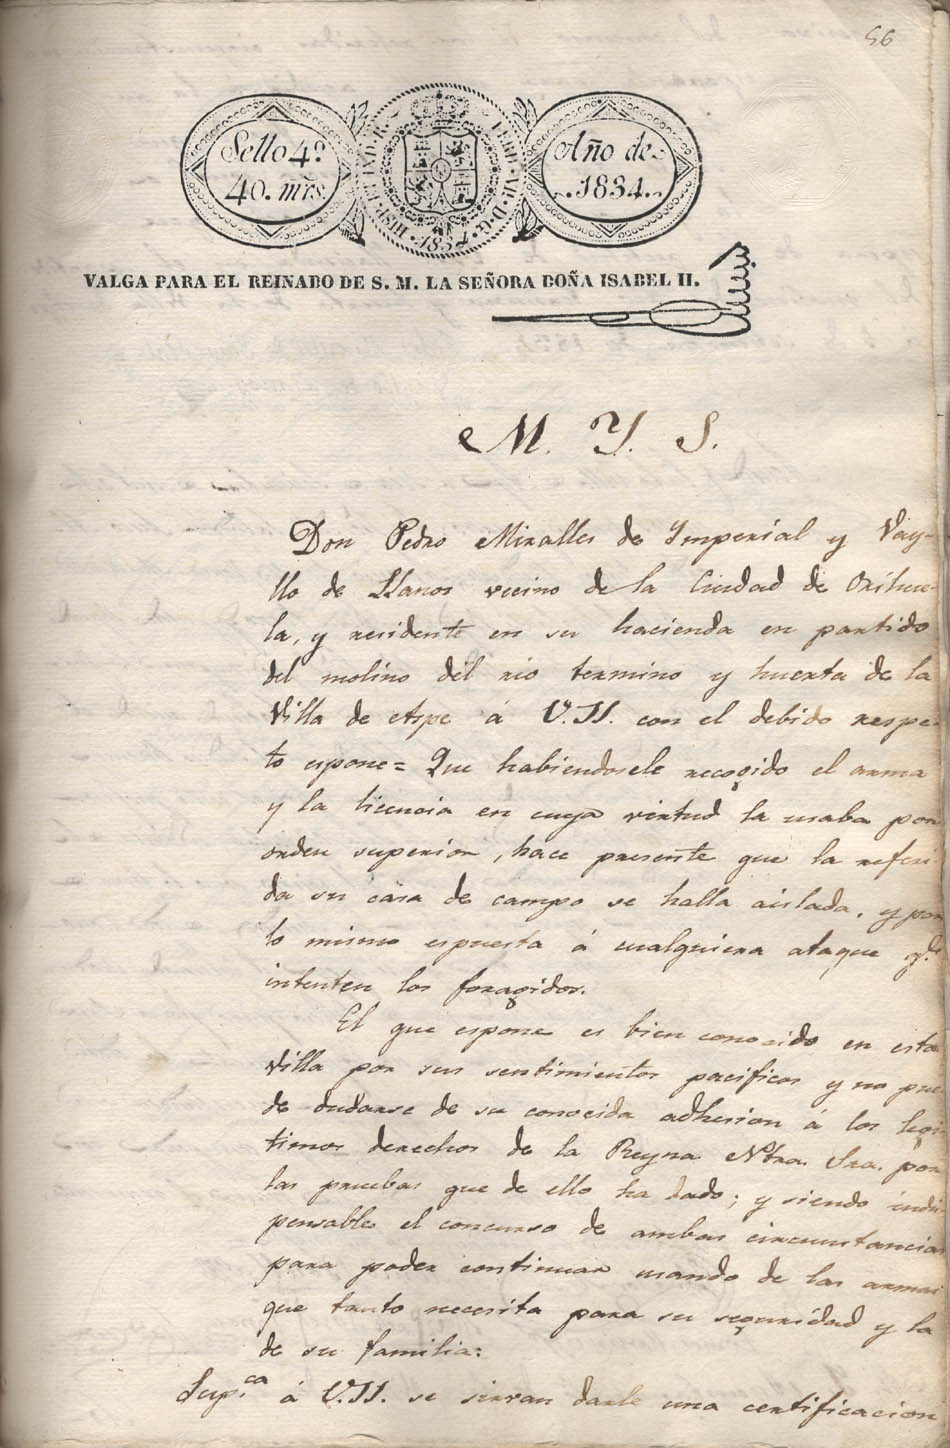 56
Sello 4º
40. mrs.
HISP. ET IND. R. FERD. VII. D. G.
1834.
Año de
1834.
VALGA PARA EL REINADO DE S. M. LA SEÑORA DOÑA ISABEL II.
M. Y. S.
Don Pedro Miralles de Imperial y Vay-
llo de Llanos vecino de la Ciudad de Orihue-
la, y residente en su hacienda en partido
del molino del rio termino y huerta de la
Villa de Aspe á V.SS. con el debido respe-
to espone= Que habiendosele recogido el arma
y la licencia en cuya virtud la usaba por
orden superior, hace presente que la referi-
da su casa de campo se halla aislada, y por
lo mismo espuesta á cualquiera ataque q.e
intenten los foragidos.
El que espone es bien conocido en esta
Villa por sus sentimientos pacificos y no pue-
de dudarse de su conocida adhesion á los legi-
timos derechos de la Reyna Ntra. Sra. por
las pruebas que de ello ha dado; y siendo indis-
pensable el concurso de ambas circunstancias
para poder continuar usando de las armas
que tanto necesita para su seguridad y la
de su familia:
Sup.ca á V.SS. se sirvan darle una certificacion